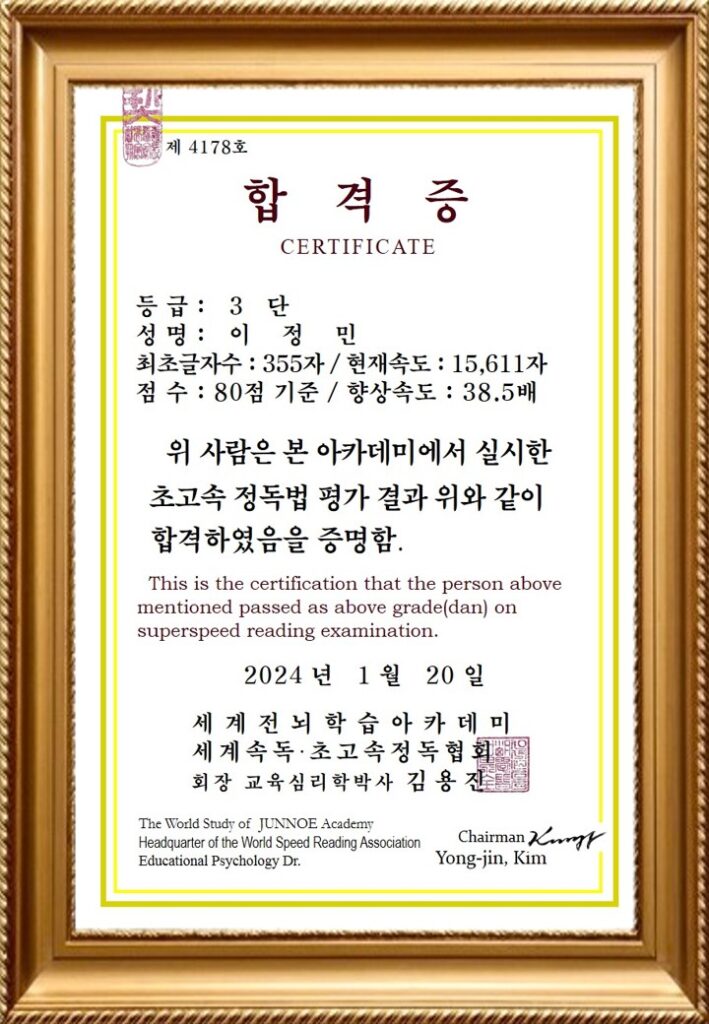 제 4178호
합 격 증
CERTIFICATE
등 급 : 3 단
성 명 : 이 정 민
최초글자수 : 355자 / 현재속도 : 15,611자
점 수 : 80점 기준 / 향상속도 : 38.5배
위 사람은 본 아카데미에서 실시한
초고속 정독법 평가 결과 위와 같이
합격하였음을 증명함.
This is the certification that the person above
mentioned passed as above grade(dan) on
superspeed reading examination.
2024 년 1 월 20 일
세 계 전 뇌 학 습 아 카 데 미
세계속독·초고속정독협회
회장 교육심리학박사 김용진
The World Study of JUNNOE Academy
Headquarter of the World Speed Reading Association
Educational Psychology Dr.
Chairman
Yong-jin, Kim